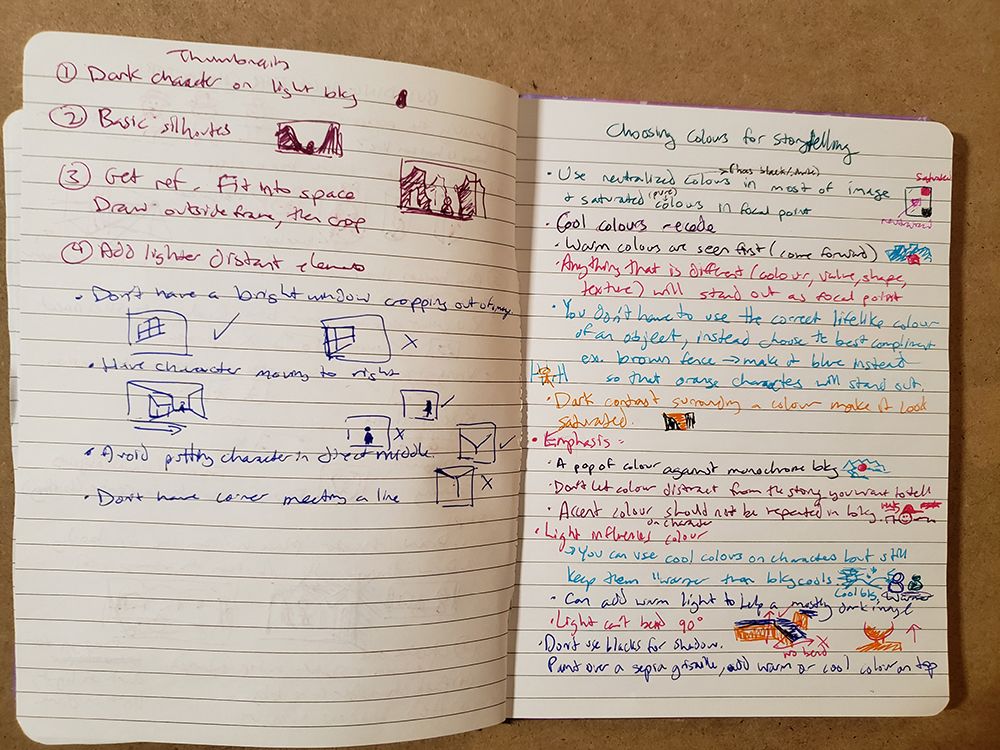 Thumbnails
① Dark character on light bkg
② Basic silhoutes
③ Get ref. Fit into space
Draw outside frame, then crop
④ Add lighter distant elements
• Don't have a bright window cropping out of image
✓ ×
• Have character moving to right
✓
×
• Avoid putting character in direct middle.
✓
• Don't have corner meeting a line
×
Choosing colours for storytelling
(has black/white)
• Use neutralized colours in most of image
(pure)
+ saturated colours in focal point
saturated
neutralized
• Cool colours recede
• Warm colours are seen first (come forward)
• Anything that is different (colour, value, shape,
texture) will stand out as focal point
• You don't have to use the correct lifelike colour
of an object, instead choose the best compliment
ex. brown fence → make it blue instead
so that orange characters will stand out.
• Dark contrast surrounding a colour make it look
saturated.
• Emphasis =
• A pop of colour against monochrome bkg
• Don't let colour distract from the story you want to tell
• Accent colour should not be repeated in bkg.
on character
• Light influences colour
→ You can use cool colours on characters but still
keep them "warmer" than bkg cools
Cool bkg, warmer
• Can add warm light to help a mostly dark image
• Light can't bend 90°
no bend
• Don't use blacks for shadow.
Paint over a sepia grisaille, add warm or cool colour on top